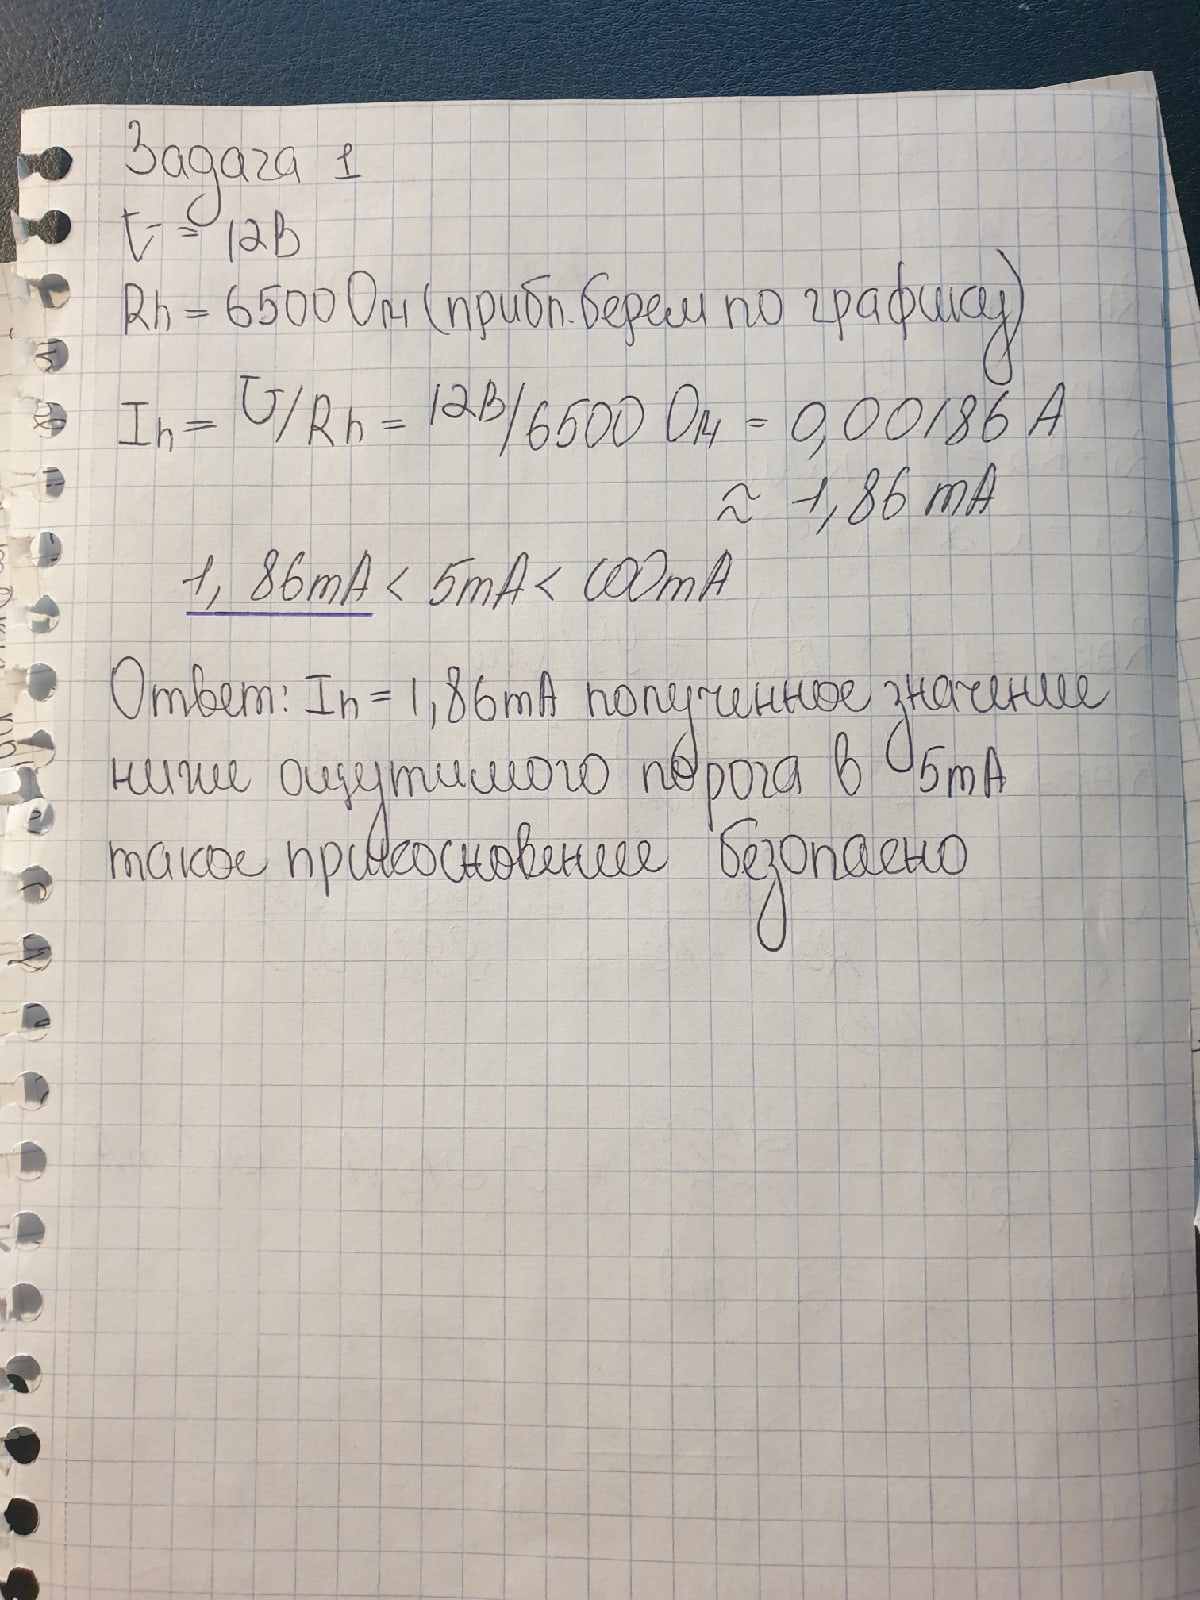 Задача 1
U = 12В
Rh = 6500 Ом (прибл. берем по графику)
Ih = U/Rh = 12В/6500 Ом = 0,00186 А
≈ 1,86 mA
1,86mA < 5mA < 100mA
Ответ: Ih = 1,86mA полученное значение
ниже ощутимого порога в 5mA
такое прикосновение безопасно